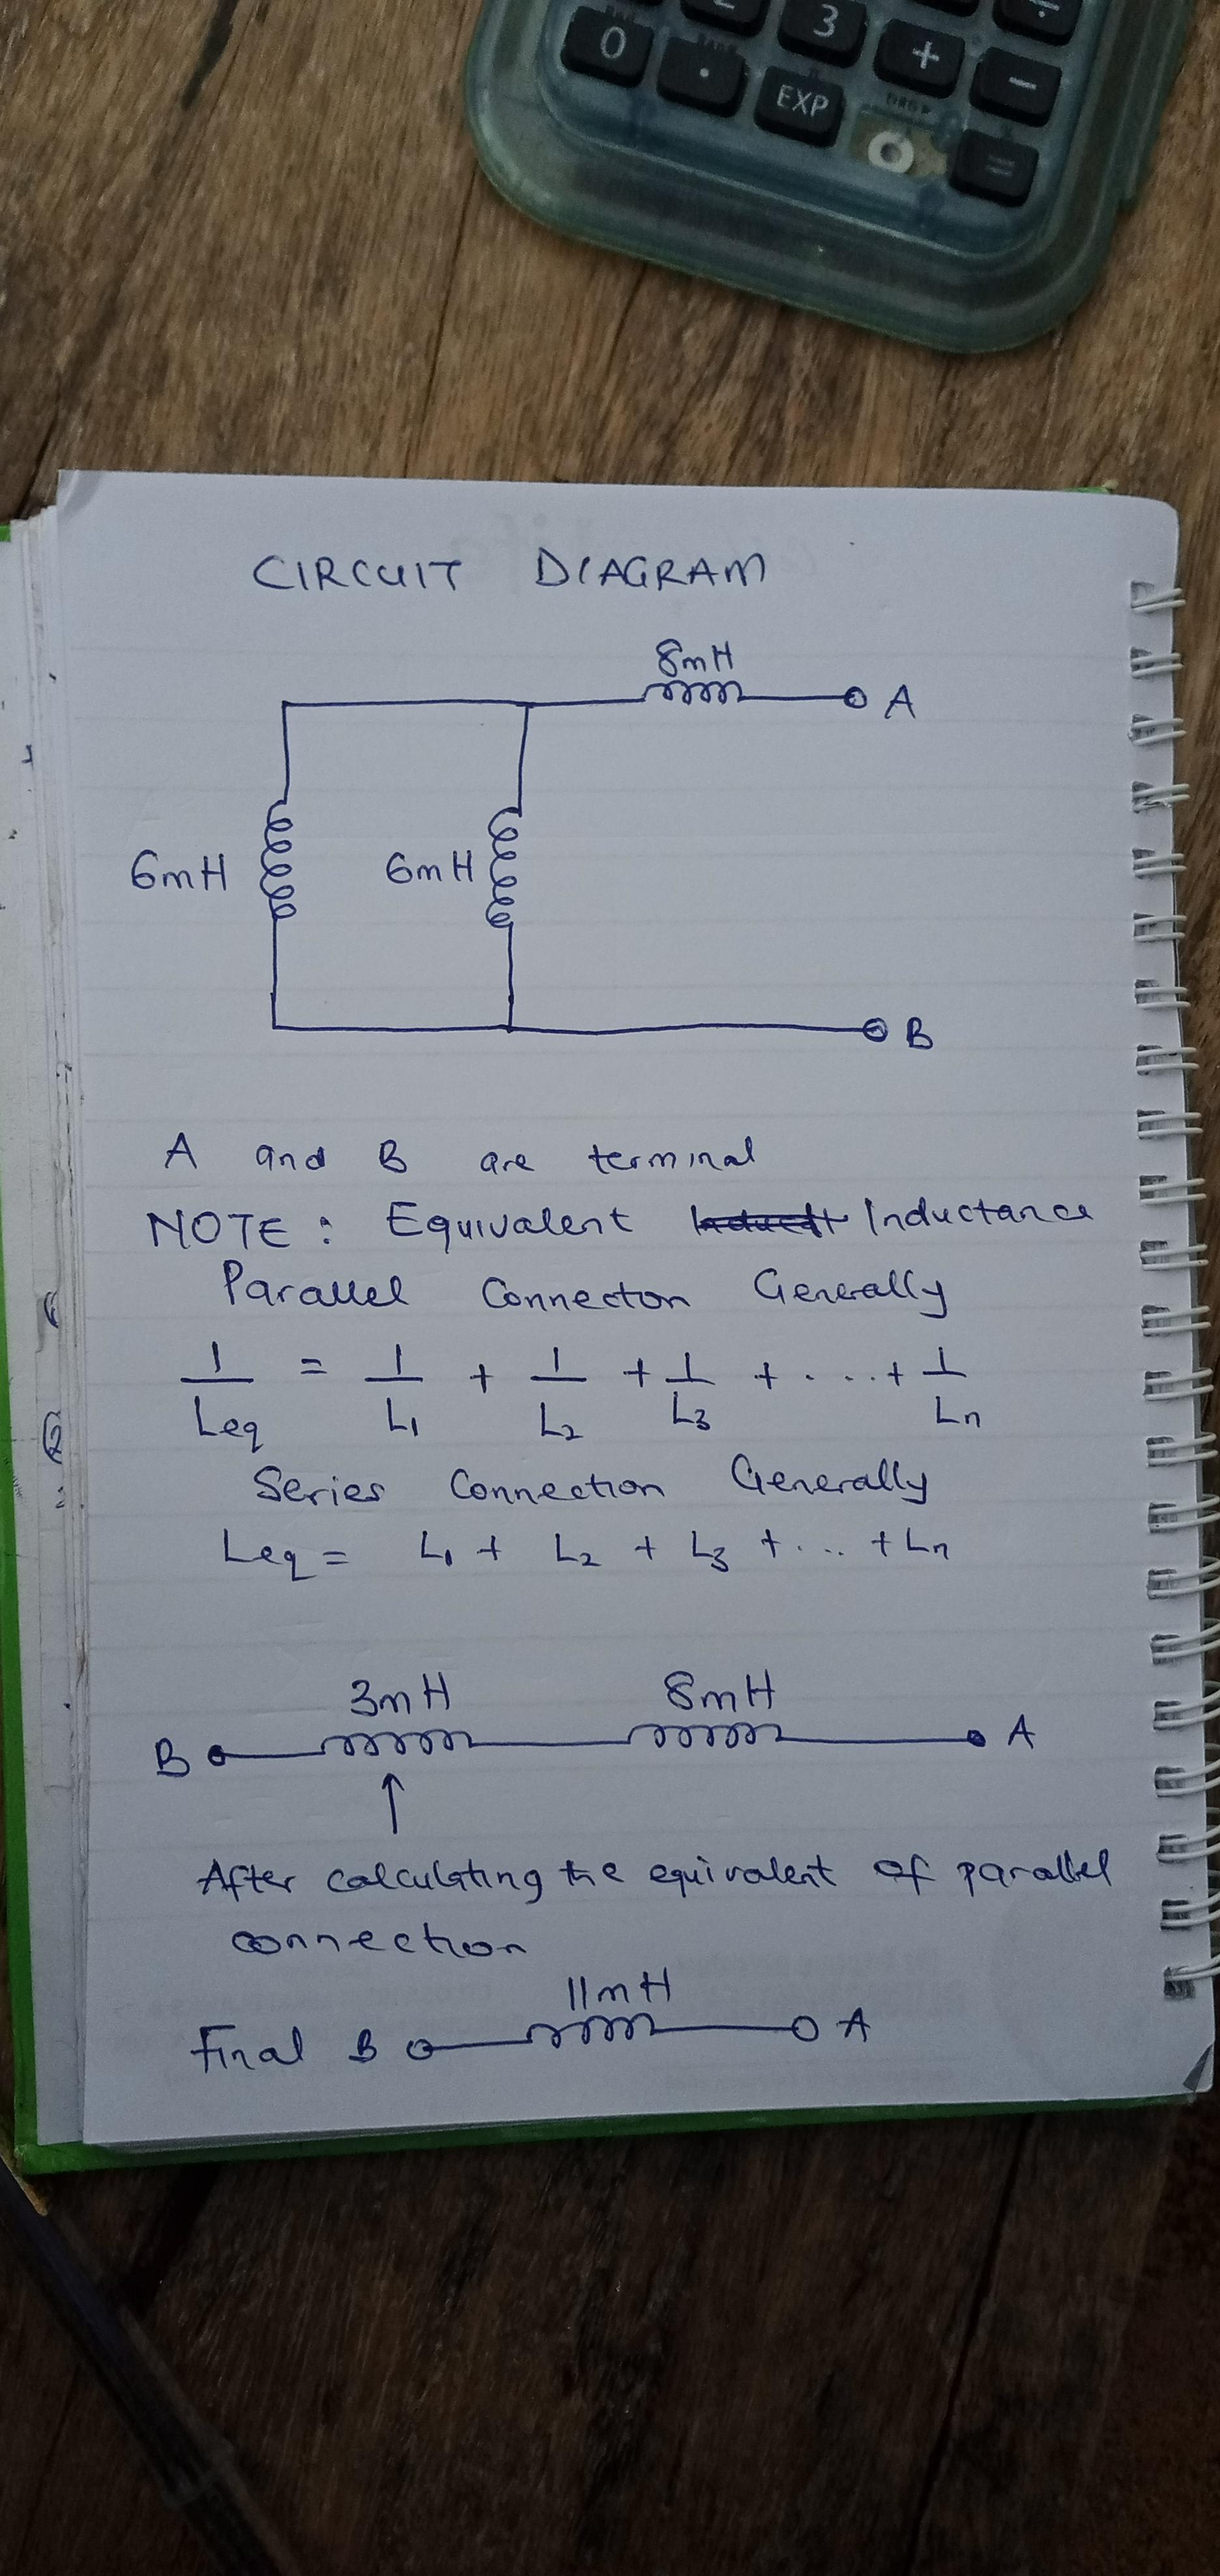 3
0
.
+
−
EXP
=
CIRCUIT DIAGRAM
8mH
A
6mH
6mH
B
A and B are terminal
NOTE: Equivalent Inductance
Parallel Connecton Generally
1/Leq = 1/L1 + 1/L2 + 1/L3 + ... + 1/Ln
Series Connection Generally
Leq = L1 + L2 + L3 + ... + Ln
3mH 8mH
B A
After calculating the equivalent of parallel
connection
11mH
Final B A